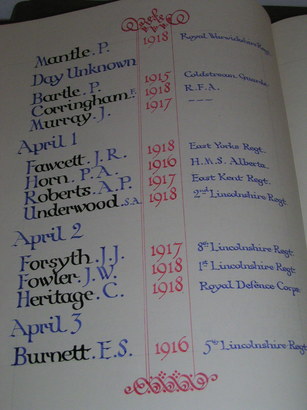 Mantle. P. 1918 Royal Warwickshire Regt.
Day Unknown
Bartle. P. 1915 Coldstream Guards.
Corringham. F. 1918 R.F.A.
Murray. J. 1917 ---
April 1
Fawcett. J. R. 1918 East Yorks Regt.
Horn. P. A. 1916 H.M.S. Alberta.
Roberts. A. P. 1917 East Kent Regt.
Underwood. S.A. 1918 2nd Lincolnshire Regt.
April 2
Forsyth. J. J. 1917 8th Lincolnshire Regt.
Fowler. J. W. 1918 1st Lincolnshire Regt.
Heritage. C. 1918 Royal Defence Corps.
April 3
Burnett. E. S. 1916 5th Lincolnshire Regt.